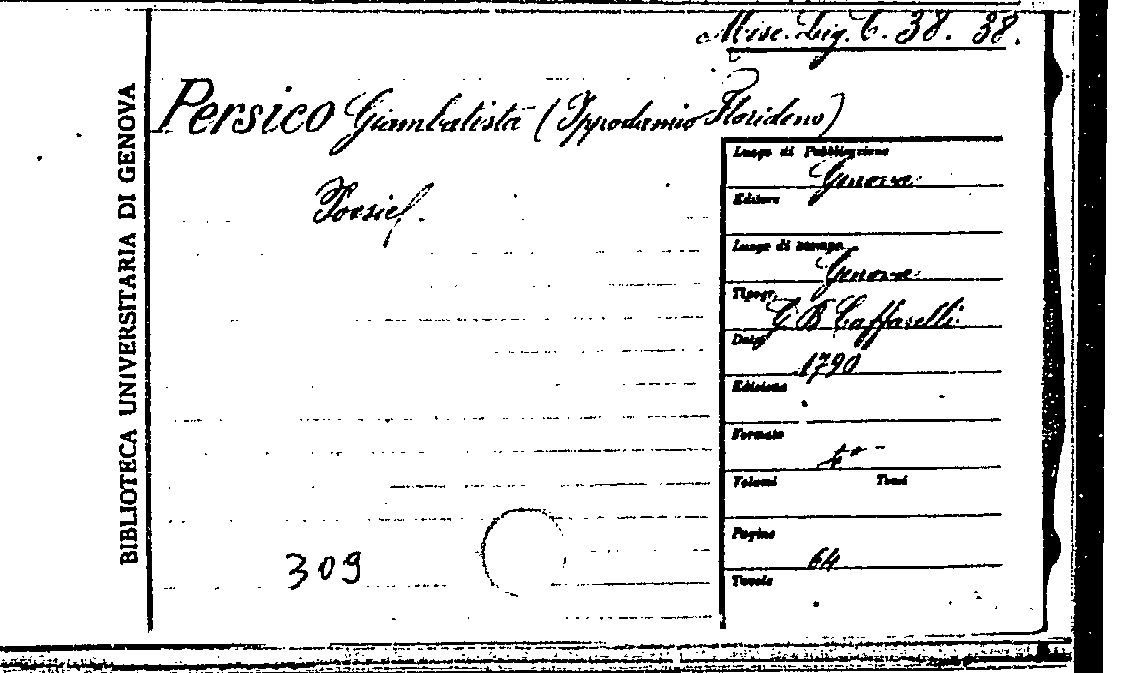 Misc. Lig. C. 38. 38.
BIBLIOTECA UNIVERSITARIA DI GENOVA
Persico Giambatista (Ippodamio Florideno)
Poesie.
Luogo di Pubblicazione
Genova
Editore
Luogo di stampa
Genova
Tipogr.
G B Caffarelli
Data
1790
Edizione
Formato
4°
Volumi Tomi
Pagine
64
Tavole
309